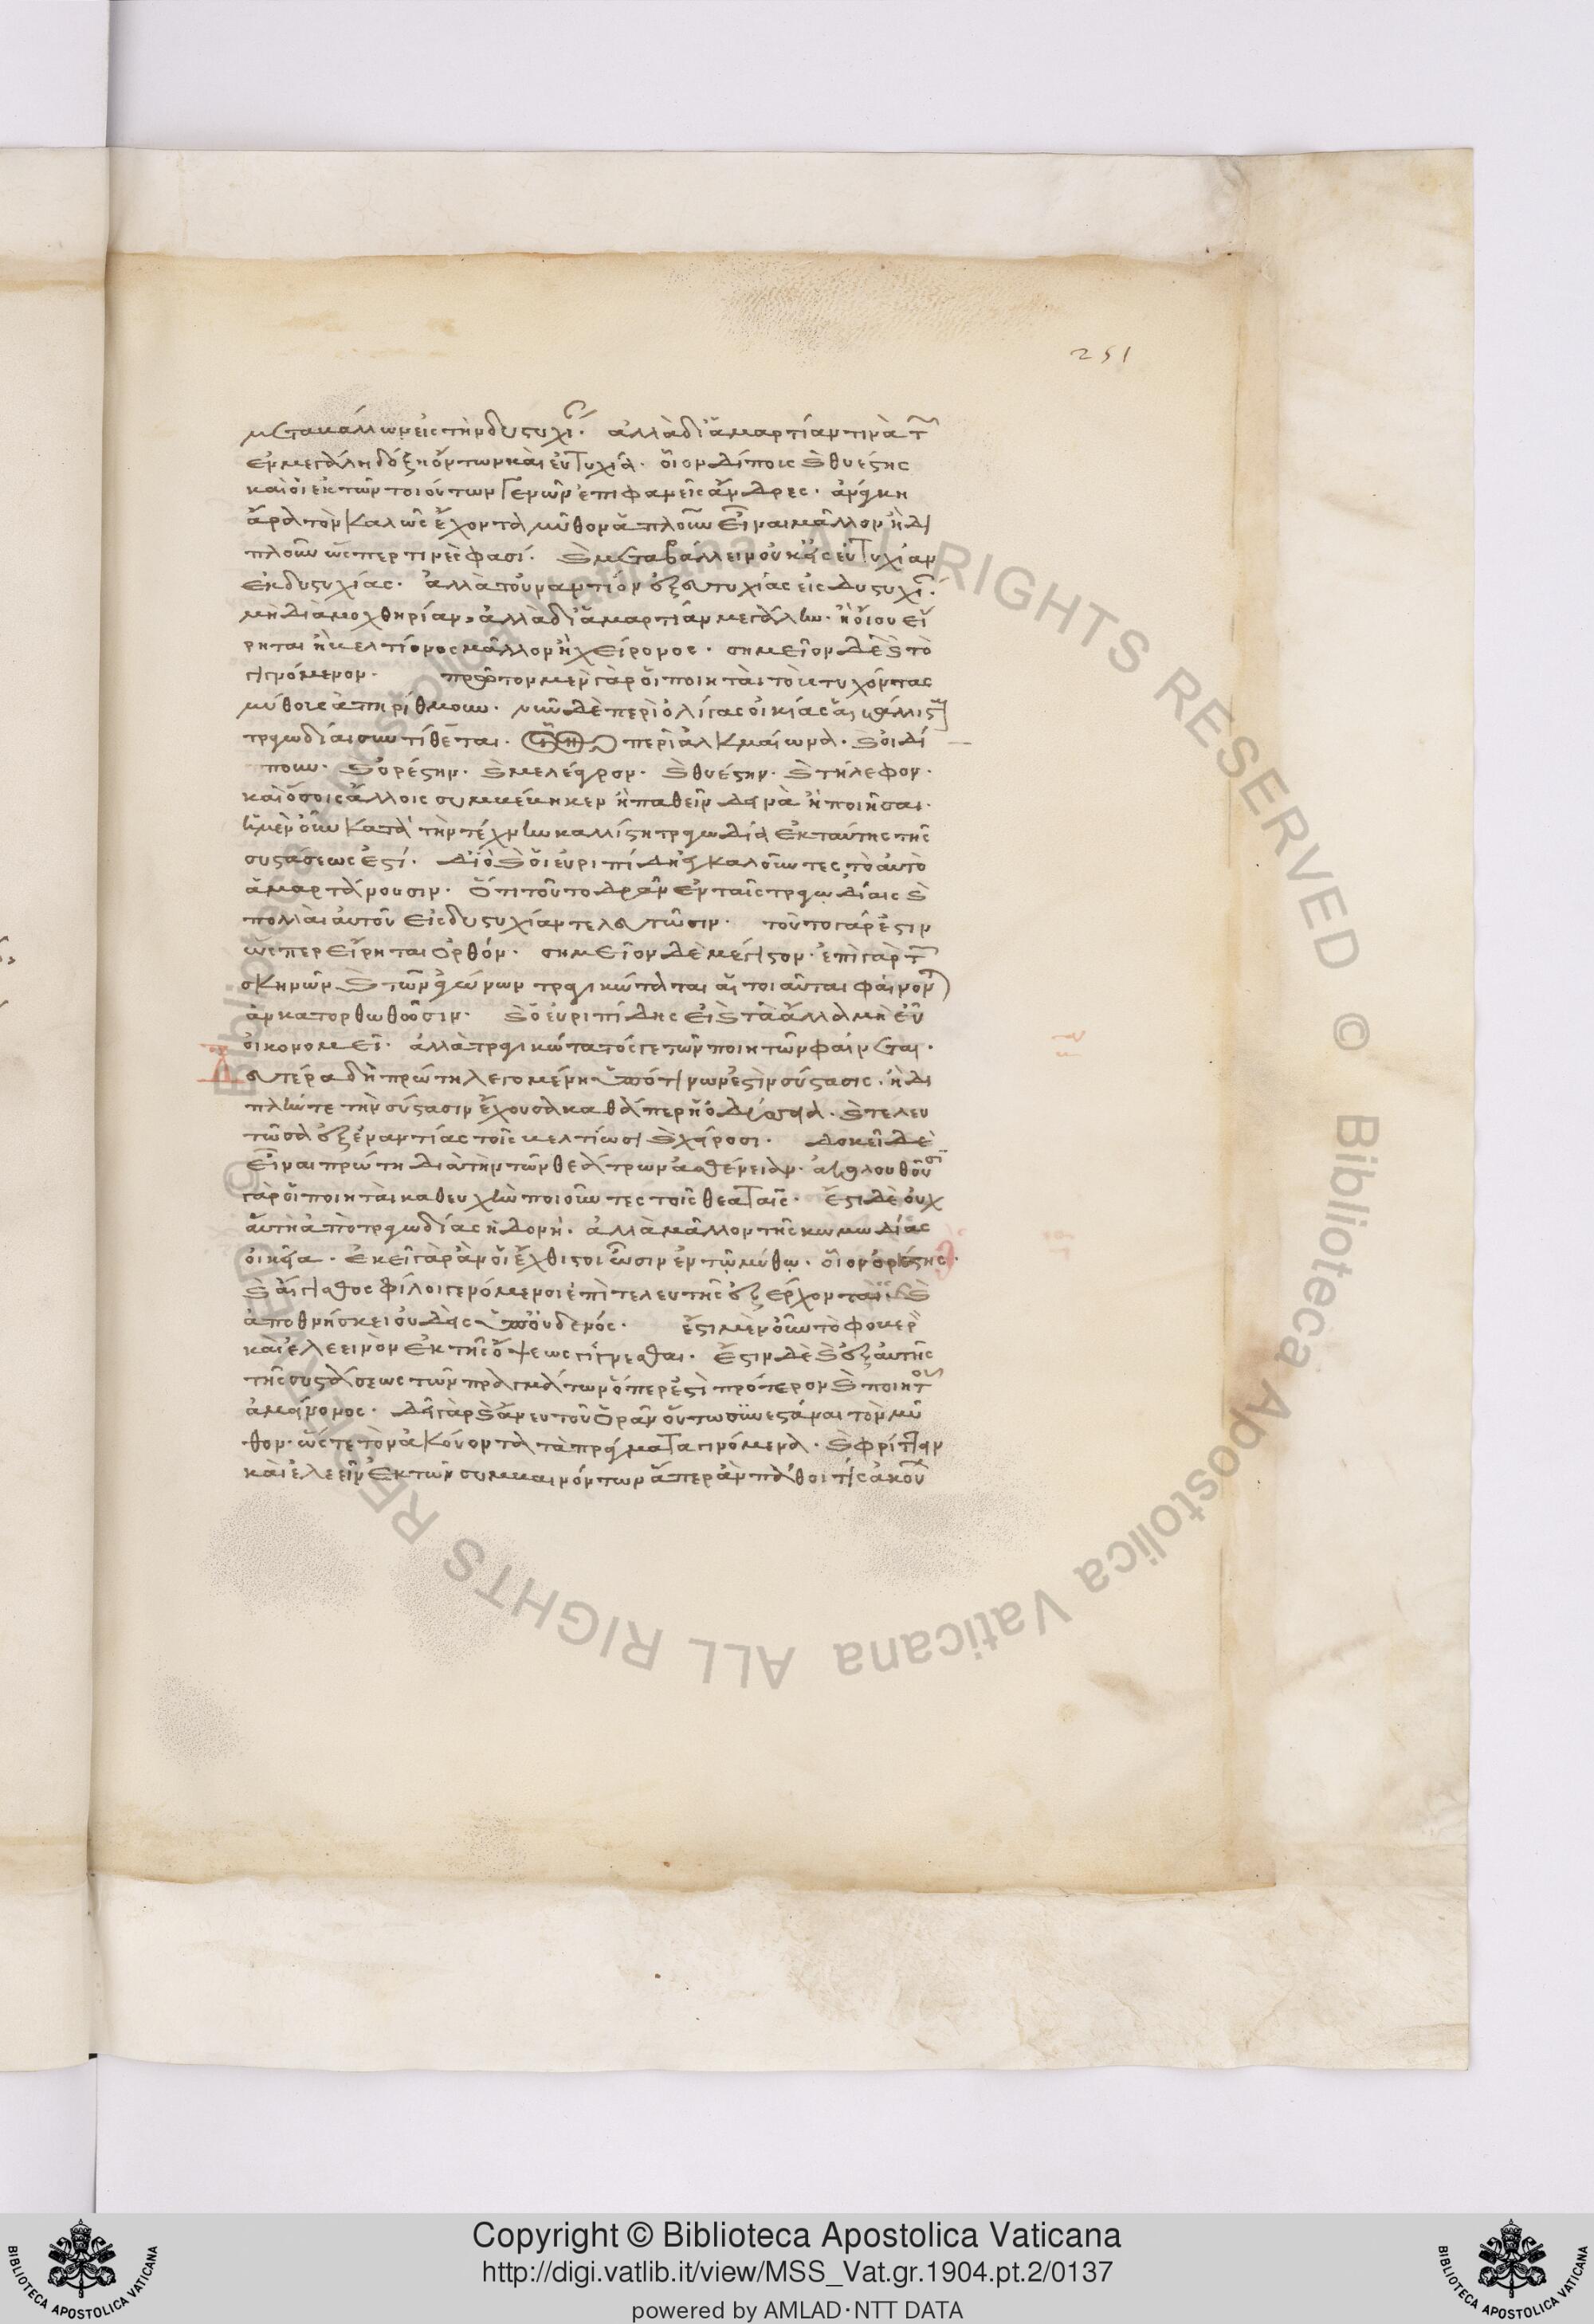 251
μεταβάλλων εἰς τὴν δυστυχί. ἀλλὰ δι' ἁμαρτίαν τινὰ τ
ἐν μεγάλη δόξη ὄντων καὶ εὐτυχία. οἷον δίπους καὶ θυέστης
καὶ οἱ ἐκ τῶν τοιούτων γενῶν ἐπιφανεῖς ἄνδρες. ἀνάγκη
ἄρα τὸν καλῶς ἔχοντα μῦθον ἁπλοῦν εἶναι μᾶλλον ἢ δι
πλοῦν ὥσπερ τινές φασί. καὶ μεταβάλλειν οὐκ εἰς εὐτυχίαν
ἐκ δυστυχίας. ἀλλὰ τοὐναντίον ἐξ εὐτυχίας εἰς δυστυχί.
μὴ διὰ μοχθηρίαν, ἀλλὰ δι' ἁμαρτίαν μεγάλην. ἢ οἵου εἴ
ρηται ἢ βελτίονος μᾶλλον ἢ χείρονος. σημεῖον δὲ καὶ τὸ
γιγνόμενον. πρῶτον μὲν γὰρ οἱ ποιηταὶ τοὺς τυχόντας
μύθους ἀπηρίθμουν. νῦν δὲ περὶ ὀλίγας οἰκίας αἱ κάλλιστ
τραγωδίαι συντίθενται. περὶ ἀλκμαίωνα. καὶ οἰδί
πουν. καὶ ὀρέστην. καὶ μελέαγρον. καὶ θυέστην. καὶ τήλεφον.
καὶ ὅσοις ἄλλοις συμβέβηκεν ἢ παθεῖν δεινὰ ἢ ποιῆσαι.
ἡ μὲν οὖν κατὰ τὴν τέχνην καλλίστη τραγωδία ἐκ ταύτης τῆς
συστάσεως ἐστί. διὸ καὶ οἱ εὐριπίδη ἐγκαλοῦντες τὸ αὐτὸ
ἁμαρτάνουσιν. ὅτι τοῦτο δρᾶν ἐν ταῖς τραγωδίαις καὶ
πολλαὶ αὐτοῦ εἰς δυστυχίαν τελευτῶσιν. τοῦτο γάρ ἐστιν
ὥσπερ εἴρηται ὀρθόν. σημεῖον δὲ μέγιστον. ἐπὶ γὰρ τ
σκηνῶν καὶ τῶν ἀγώνων τραγικώταται αἱ τοιαῦται φαίνον
ἂν κατορθωθῶσιν. καὶ ὁ εὐριπίδης εἰ καὶ τὰ ἄλλα μὴ εὖ
οἰκονομεῖ. ἀλλὰ τραγικώτατός γε τῶν ποιητῶν φαίνεται.
Δευτέρα δὴ πρώτη λεγομένη ὑπό τινων ἐστὶν σύστασις. ἡ δι
πλῆν τε τὴν σύστασιν ἔχουσα καθάπερ ἡ ὀδύσσεια. καὶ τελευ
τῶσα ἐξ ἐναντίας τοῖς βελτίωσι καὶ χείροσι. δοκεῖ δὲ
εἶναι πρώτη διὰ τὴν τῶν θεάτρων ἀσθένειαν. ἀκολουθοῦσι
γὰρ οἱ ποιηταὶ κατ' εὐχὴν ποιοῦντες τοῖς θεαταῖς. ἔστι δὲ οὐχ
αὕτη ἀπὸ τραγωδίας ἡδονή. ἀλλὰ μᾶλλον τῆς κωμωδίας
οἰκεία. ἐκεῖ γὰρ ἂν οἱ ἔχθιστοι ὦσιν ἐν τῷ μύθῳ. οἷον ὀρέστης.
καὶ αἴγισθος φίλοι γενόμενοι ἐπὶ τελευτῆς ἐξέρχονται. καὶ
ἀποθνήσκει οὐδεὶς ὑπ' οὐδενός. ἔστι μὲν οὖν τὸ φοβερὸ
καὶ ἐλεεινὸν ἐκ τῆς ὄψεως γίγνεσθαι. ἔστιν δὲ καὶ ἐξ αὐτῆς
τῆς συστάσεως τῶν πραγμάτων ὅπερ ἐστὶ πρότερον καὶ ποιητοῦ
ἀμείνονος. δεῖ γὰρ καὶ ἄνευ τοῦ ὁρᾶν οὕτω συνεστάναι τὸν μῦ
θον. ὥστε τὸν ἀκούοντα τὰ πράγματα γινόμενα. καὶ φρίττειν
καὶ ἐλεεῖν ἐκ τῶν συμβαινόντων ἅπερ ἂν πάθοι τίς ἀκούω
Copyright © Biblioteca Apostolica Vaticana
http://digi.vatlib.it/view/MSS_Vat.gr.1904.pt.2/0137
powered by AMLAD·NTT DATA
BIBLIOTECA APOSTOLICA VATICANA
BIBLIOTECA APOSTOLICA VATICANA
© Biblioteca Apostolica Vaticana ALL RIGHTS RESERVED © Biblioteca Apostolica Vaticana ALL RIGHTS RESERVED